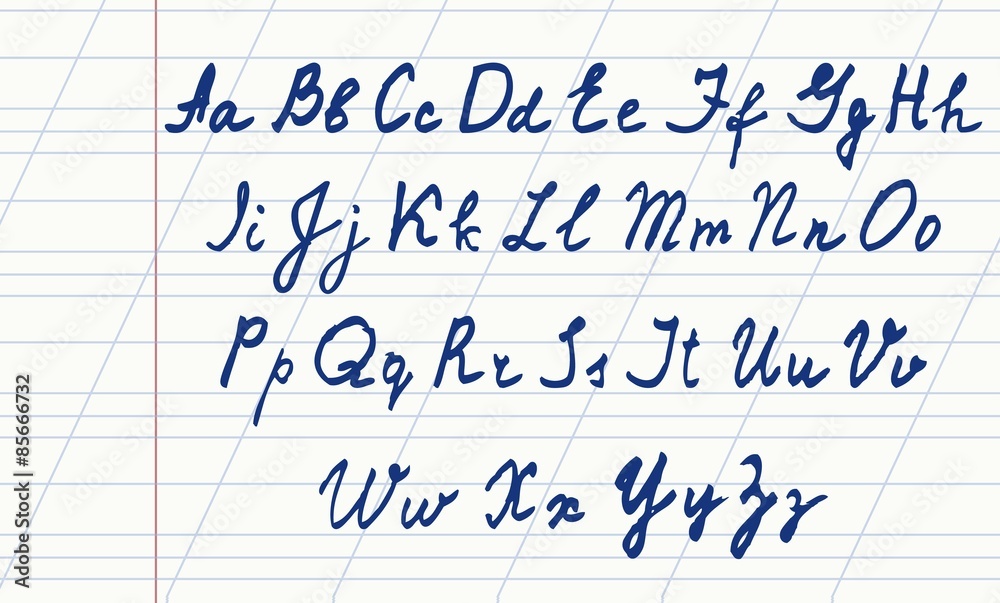 Aa Bb Cc Dd Ee Ff Gg Hh
Ii Jj Kk Ll Mm Nn Oo
Pp Qq Rr Ss Tt Uu Vv
Ww Xx Yy Zz
Adobe Stock | #85666732